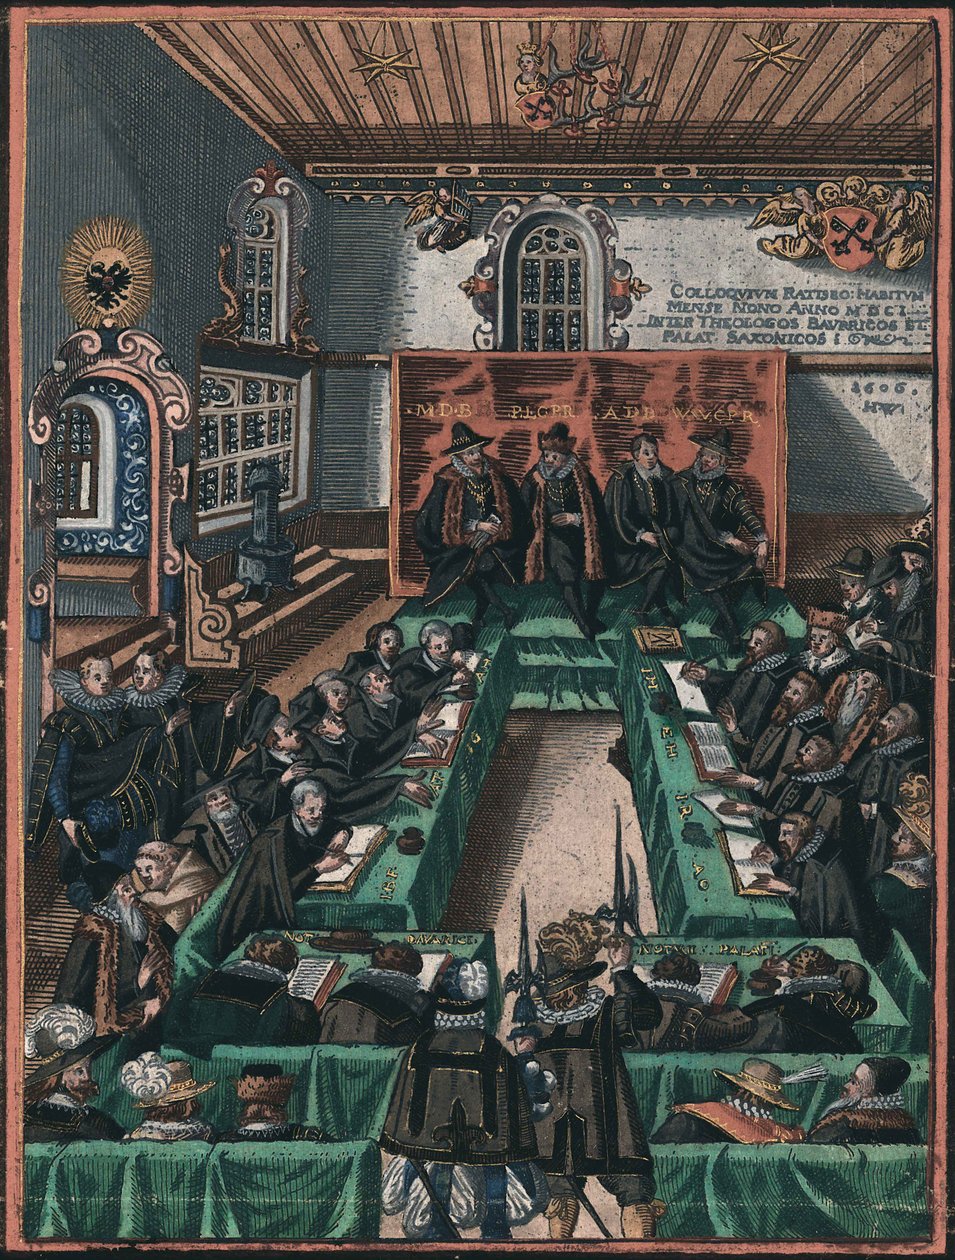 COLLOQVIVM RATISBO: HABITVM
MENSE NONO ANNO MDCI
INTER THEOLOGOS BAVARICOS ET
PALAT SAXONICOS
1606
HW
M D B P L C P R A D B W V G P R
AT
G
AT
IHF
IM
EH
IR
AC
NOT BAVARICI
NOTARII PALATI